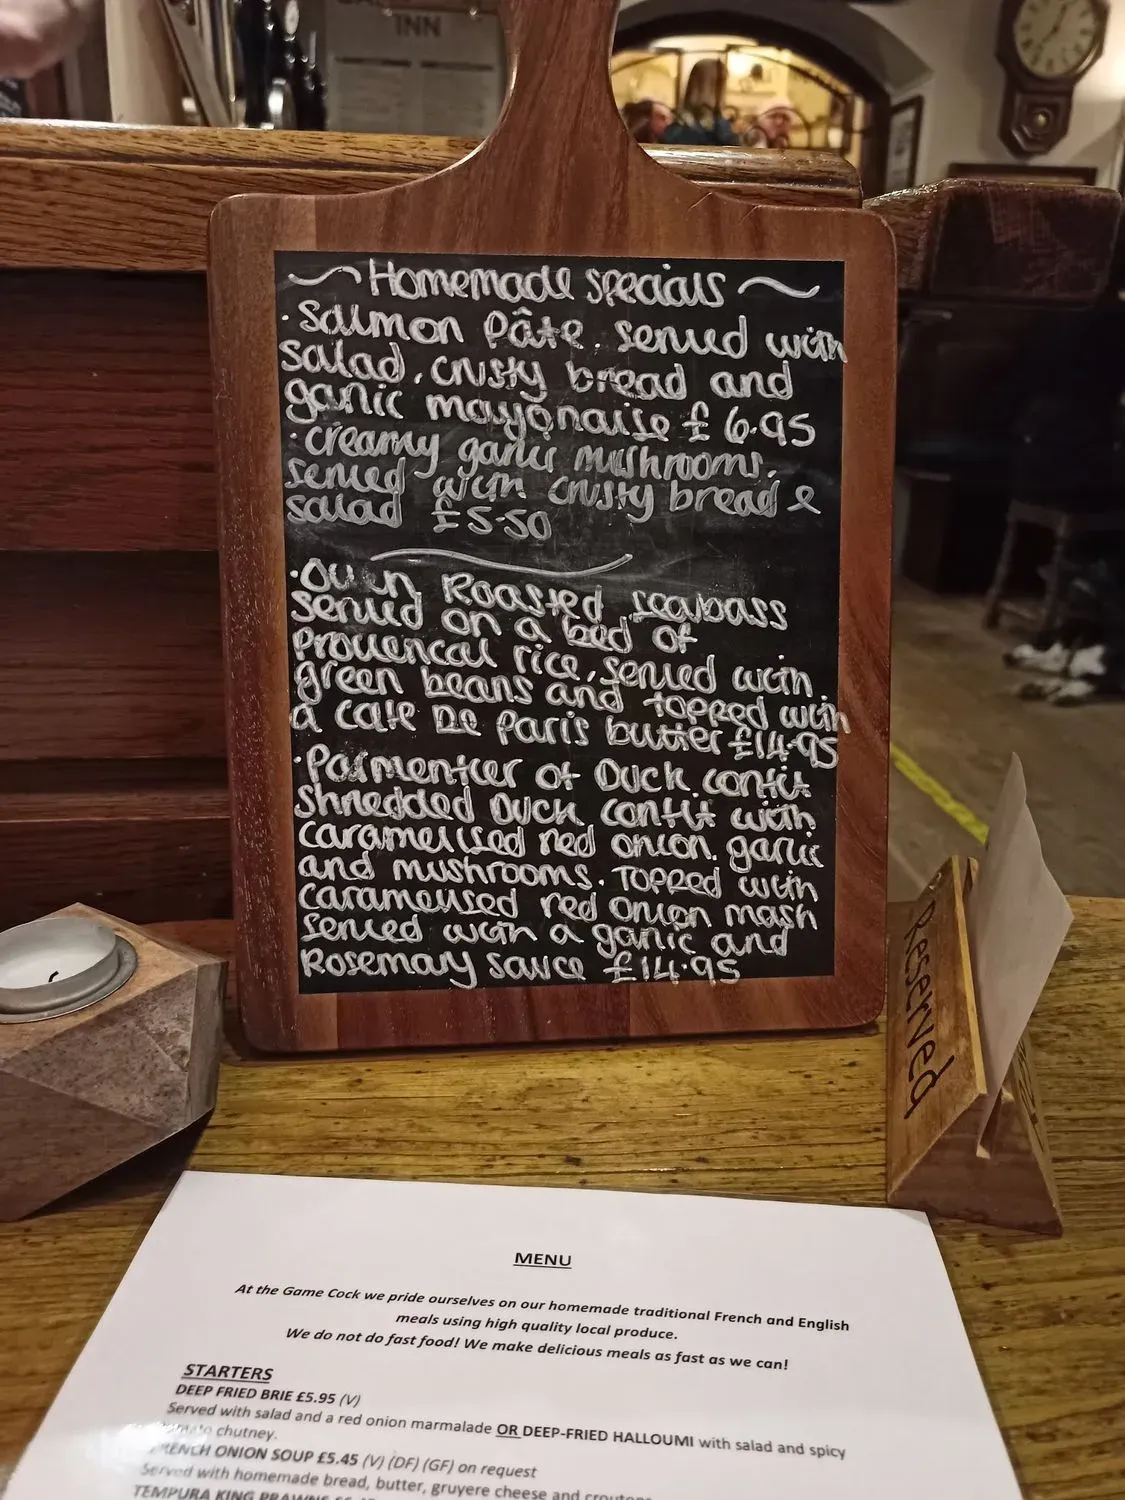 INN
Homemade specials
· Salmon Pâte. served with
salad, crusty bread and
garlic mayonaise £6.95
· creamy garlic mushrooms.
served with crusty bread &
salad £5.50
· Oven Roasted seabass
served on a bed of
provencal rice, served with
green beans and topped with
a cafe De Paris butter £14.95
· Parmentier of Duck confit
shredded Duck confit with
caramelised red onion, garlic
and mushrooms. Topped with
caramelised red onion mash
served with a garlic and
Rosemary sauce £14.95
Reserved
MENU
At the Game Cock we pride ourselves on our homemade traditional French and English
meals using high quality local produce.
We do not do fast food! We make delicious meals as fast as we can!
STARTERS
DEEP FRIED BRIE £5.95 (V)
Served with salad and a red onion marmalade OR DEEP-FRIED HALLOUMI with salad and spicy
chutney.
FRENCH ONION SOUP £5.45 (V) (DF) (GF) on request
Served with homemade bread, butter, gruyere cheese and croutons
TEMPURA KING PRAWNS